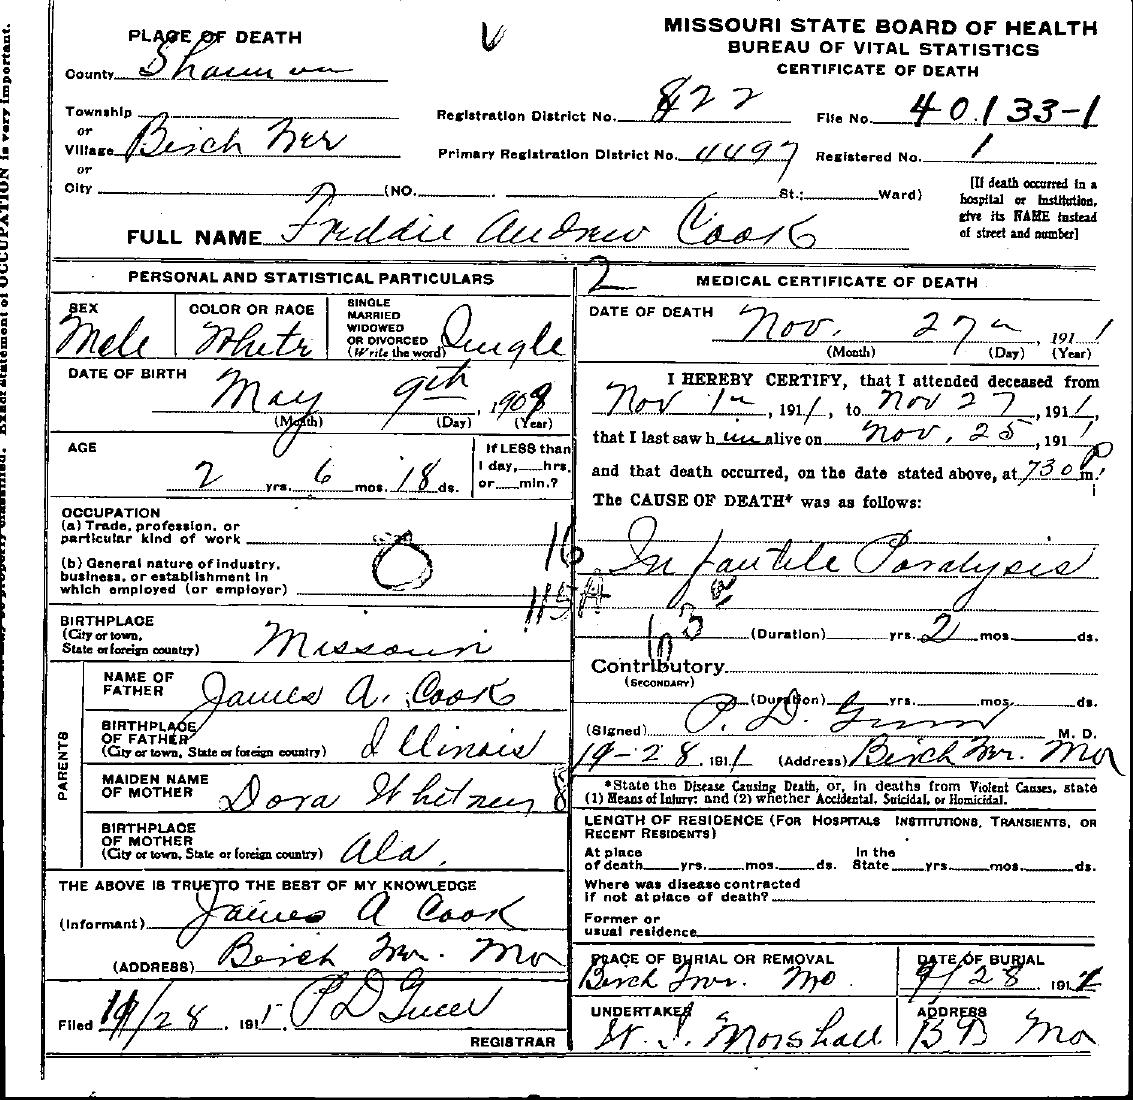 MISSOURI STATE BOARD OF HEALTH
BUREAU OF VITAL STATISTICS
CERTIFICATE OF DEATH
PLACE OF DEATH
County Shannon
Township
or
Village Birch Tree
or
City (NO. St.; Ward)
Registration District No. 822
File No. 40133-1
Primary Registration District No. 4497
Registered No. 1
[If death occurred in a
hospital or institution,
give its NAME instead
of street and number]
FULL NAME Freddie Andrew Cook
PERSONAL AND STATISTICAL PARTICULARS
SEX
Male
COLOR OR RACE
White
SINGLE
MARRIED
WIDOWED
OR DIVORCED
(Write the word) Single
DATE OF BIRTH
May 9th, 1909
(Month) (Day) (Year)
AGE
2 yrs. 6 mos. 18 ds.
If LESS than
1 day, hrs.
or min.?
OCCUPATION
(a) Trade, profession, or
particular kind of work
(b) General nature of industry,
business, or establishment in
which employed (or employer)
BIRTHPLACE
(City or town,
State or foreign country) Missouri
PARENTS
NAME OF
FATHER James A. Cook
BIRTHPLACE
OF FATHER
(City or town, State or foreign country) Illinois
MAIDEN NAME
OF MOTHER Dora Whitney
BIRTHPLACE
OF MOTHER
(City or town, State or foreign country) Ala.
THE ABOVE IS TRUE TO THE BEST OF MY KNOWLEDGE
(Informant) James A Cook
(ADDRESS) Birch Tree. Mo
Filed 11/28 191
REGISTRAR
2
MEDICAL CERTIFICATE OF DEATH
DATE OF DEATH
Nov. 27, 1911
(Month) (Day) (Year)
I HEREBY CERTIFY, that I attended deceased from
Nov 1, 1911, to Nov 27, 1911,
that I last saw him alive on Nov. 25, 1911
and that death occurred, on the date stated above, at 730 P m.
The CAUSE OF DEATH* was as follows:
Infantile Paralysis
(Duration) yrs. 2 mos. ds.
Contributory
(SECONDARY)
(Duration) yrs. mos. ds.
(Signed) P. D. Gunn M. D.
28, 1911 (Address) Birch Tree. Mo
*State the Disease Causing Death, or, in deaths from Violent Causes, state
(1) Means of Injury; and (2) whether Accidental, Suicidal, or Homicidal.
LENGTH OF RESIDENCE (FOR HOSPITALS INSTITUTIONS, TRANSIENTS, OR
RECENT RESIDENTS)
At place
of death yrs. mos. ds.
In the
State yrs. mos. ds.
Where was disease contracted
if not at place of death?
Former or
usual residence
PLACE OF BURIAL OR REMOVAL
Birch Tree Mo.
DATE OF BURIAL
28 191
UNDERTAKER
Marshall
ADDRESS
Mo